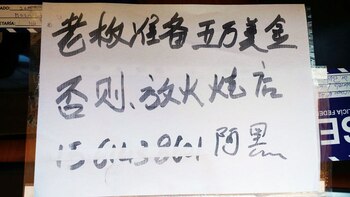 老板准备五万美金
否则、放火烧店
阿黑